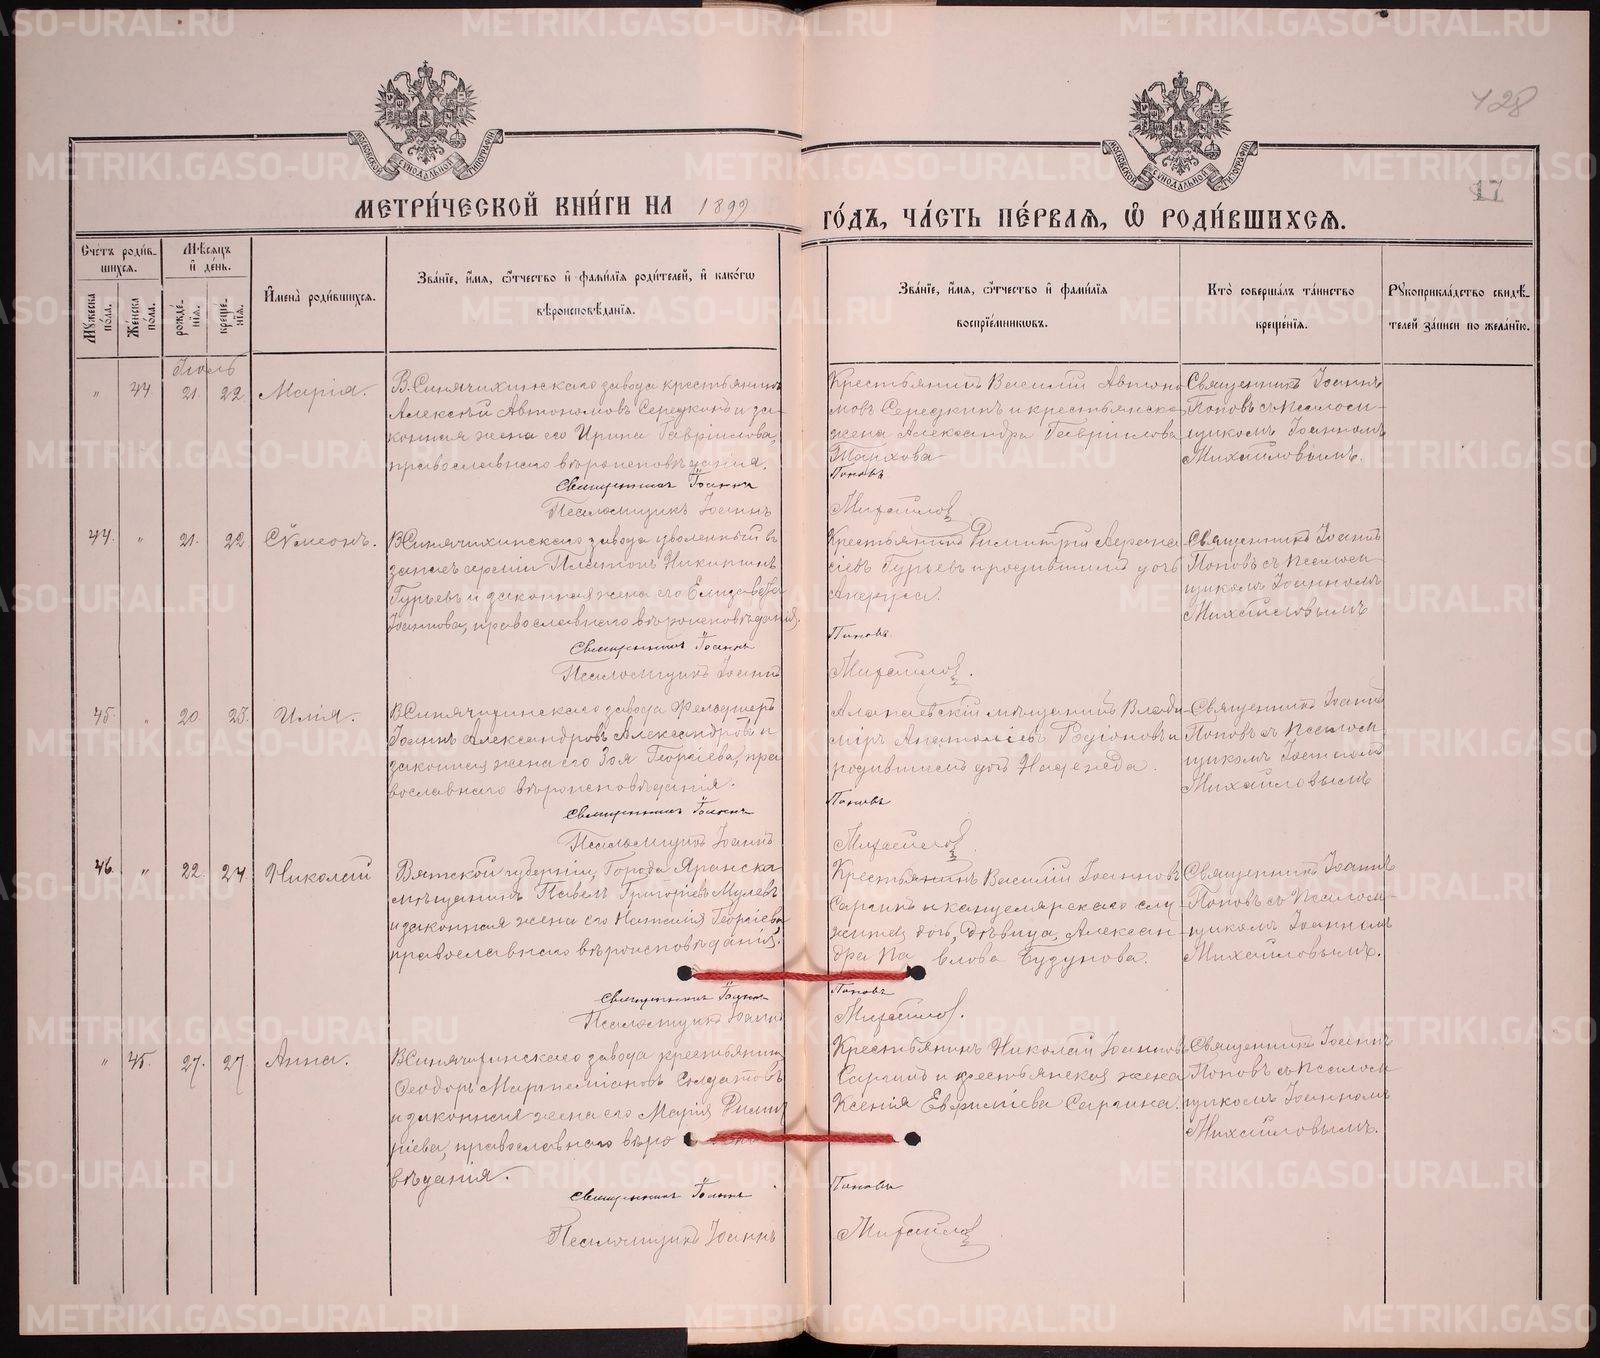 428
17
МОСКОВСКОЙ СѴНОДАЛЬНОЙ ТИПОГРАФІИ
МОСКОВСКОЙ СѴНОДАЛЬНОЙ ТИПОГРАФІИ
МЕТРИ́ЧЕСКОЙ КНИ́ГИ НА 1899 ГО́ДЪ, ЧА́СТЬ ПЕ́РВАЯ, Ѽ РОДИ́ВШИХСЯ.
Сче́тъ роди́вшихся.
Мѣ́сяцъ и҆ де́нь.
Мꙋ́жеска по́ла.
Же́нска по́ла.
рожде́нїѧ.
креще́нїѧ.
И҆мена̀ роди́вшихся.
Зва́нїе, и҆́мя, ѻ҆́тчество и҆ фами́лїѧ роди́телей, и҆ како́гѡ
вѣроисповѣ́данїѧ.
Зва́нїе, и҆́мя, ѻ҆́тчество и҆ фами́лїѧ
воспрїе́мникѡвъ.
Кто̀ соверша́лъ та́инство
креще́нїѧ.
Рꙋкоприкла́дство свидѣ́телей за́писи по жела́нїю.
Іюль
" 44 21. 22 Марія.
В. Синячихинскаго завода крестьянинъ
Алексѣй Автономовъ Середкинъ и за-
конная жена его Ирина Гавріилова,
православнаго вѣроисповѣданія.
Священникъ Іоаннъ
Псаломщикъ Іоаннъ
Крестьянинъ Василій Автоно
мовъ Середкинъ и крестьянска
жена Александра Гавріилова
Поповъ
Михайловъ
Священникъ Іоаннъ
Поповъ съ псалом-
щикомъ Іоанномъ
Михайловымъ.
44. " 21. 22 Сѵмеонъ.
В Синячихинскаго завода уволенный въ
запасъ арміи Платонъ Никитинъ
Гурьевъ и законная жена его Елизавета
Іоаннова, православнаго вѣроисповѣданія.
Священникъ Іоаннъ
Псаломщикъ Іоаннъ
Крестьянинъ Димитрій Афана
сіевъ Гурьевъ и родившихъ дочь
Поповъ
Михайловъ.
Священникъ Іоаннъ
Поповъ съ псалом-
щикомъ Іоанномъ
Михайловымъ
45. " 20 23. Илія.
В Синячихинскаго завода Фельдшеръ
Іоаннъ Александровъ Александровъ и
законная жена его Зоя Георгіева, пра
вославнаго вѣроисповѣданія.
Священникъ Іоаннъ
Псаломщикъ Іоаннъ
Алапаевскій мѣщанинъ Влади
міръ Анатоліевъ Родіоновъ и
родившихъ дочь Надежда.
Поповъ
Михайловъ
Священникъ Іоаннъ
Поповъ съ псалом-
щикомъ Іоанномъ
Михайловымъ
46. " 22. 24 Николай
Вятской губерніи, Города Яранска
мѣщанинъ Павелъ Григорьевъ Мулевъ
и законная жена его Наталія Георгіева
православнаго вѣроисповѣданія.
Священникъ Іоаннъ
Псаломщикъ Іоаннъ
Крестьянинъ Василій Іоанновъ
Саргинъ и канцелярскаго слу
жителя дочь, дѣвица, Алексан-
дра Павлова
Поповъ
Михайловъ.
Священникъ Іоаннъ
Поповъ съ псалом-
щикомъ Іоанномъ
Михайловымъ.
" 45. 27. 27 Анна.
В Синячихинскаго завода крестьянинъ
Ѳеодоръ Мартеміановъ Солдатовъ
и законная жена его Марія Димит
ріева, православнаго вѣроиспо
вѣданія.
Священникъ Іоаннъ
Псаломщикъ Іоаннъ
Крестьянинъ Николай Іоанновъ
Саргинъ и крестьянская жена
Ксенія Евфиміева Саргина.
Поповъ
Михайловъ
Священникъ Іоаннъ
Поповъ съ псалом
щикомъ Іоанномъ
Михайловымъ.
METRIKI.GASO-URAL.RU